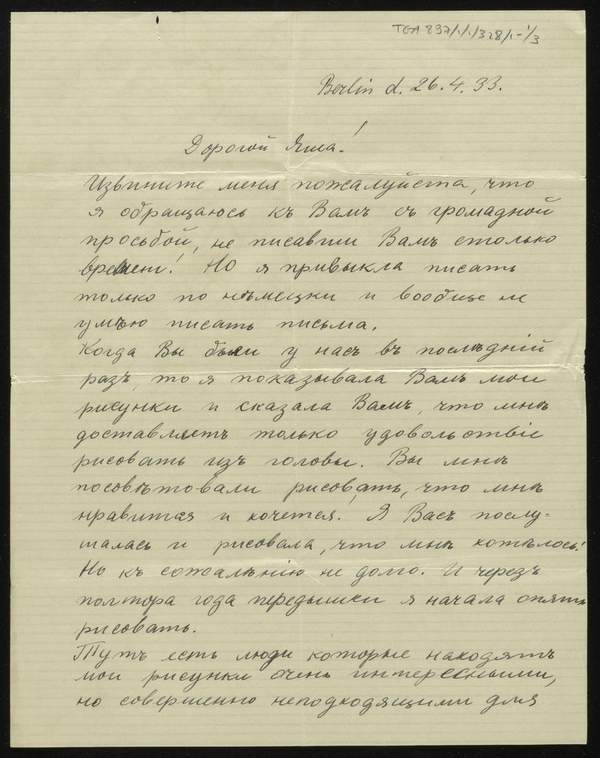 TGA 837/1/1/328/1-1/3
Berlin d. 26.4.33.
Дорогой Яша!
Извините меня пожалуйста, что
я обращаюсь къ Вамъ съ громадной
просьбой, не писавши Вамъ столько
времени! Но я привыкла писать
только по нѣмецки и вообще не
умѣю писать письма.
Когда Вы были у насъ въ послѣдній
разъ, то я показывала Вамъ мои
рисунки и сказала Вамъ, что мнѣ
доставляетъ только удовольствіе
рисовать изъ головы. Вы мнѣ
посовѣтовали рисовать, что мнѣ
нравится и хочется. Я Васъ послу-
шалась и рисовала, что мнѣ хотѣлось!
Но къ сожалѣнію не долго. И черезъ
полтора года передышки я начала опять
рисовать.
Тутъ есть люди которые находятъ
мои рисунки очень интересными,
но совершенно неподходящими для